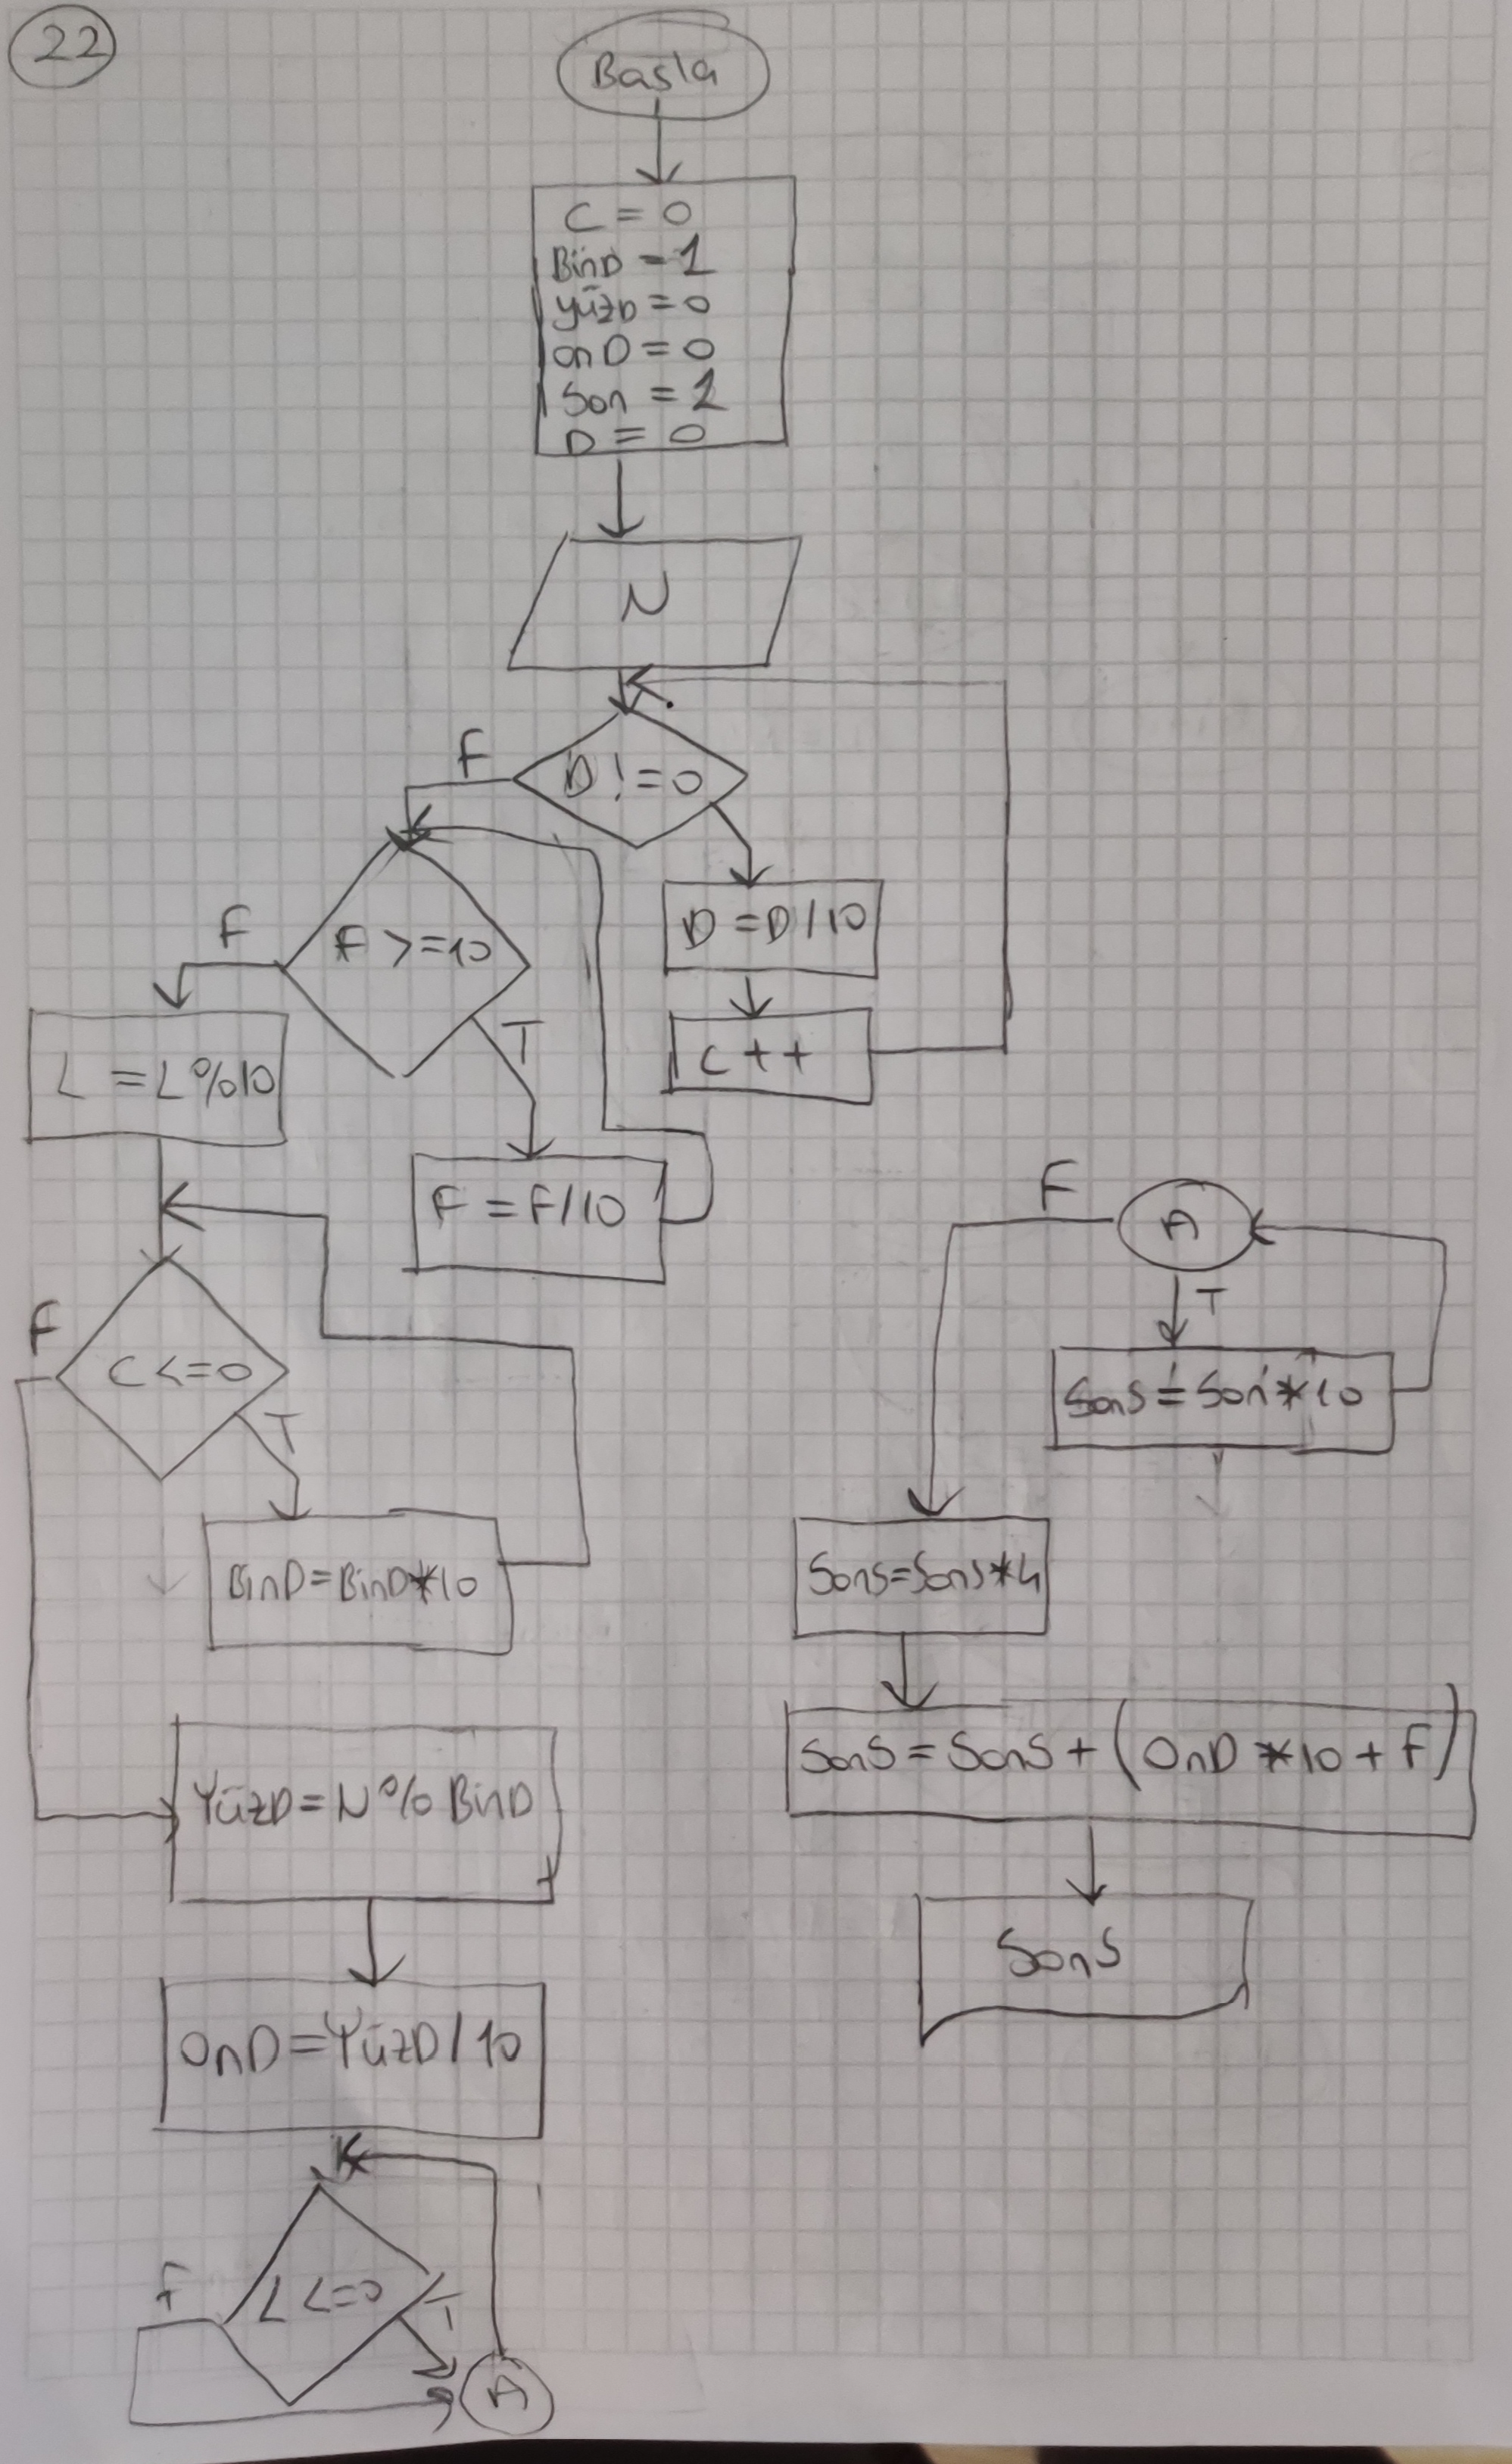 22
Başla
C = 0
BinD = 1
YüzD = 0
onD = 0
Son = 1
D = 0
N
D != 0
F
D = D/10
C++
F >= 10
F
T
L = L%10
F = F/10
C <= 0
F
T
BinD = BinD*10
YüzD = N % BinD
OnD = YüzD/10
L <= 0
F
T
A
A
F
T
SonS = Son*10
SonS = SonS*L
SonS = SonS + (OnD * 10 + F)
SonS